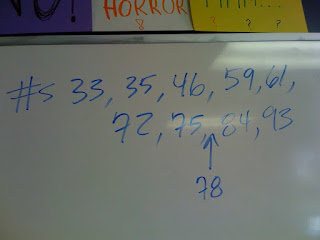 HORROR
#s 33, 35, 46, 59, 61,
72, 75, 84, 93
78